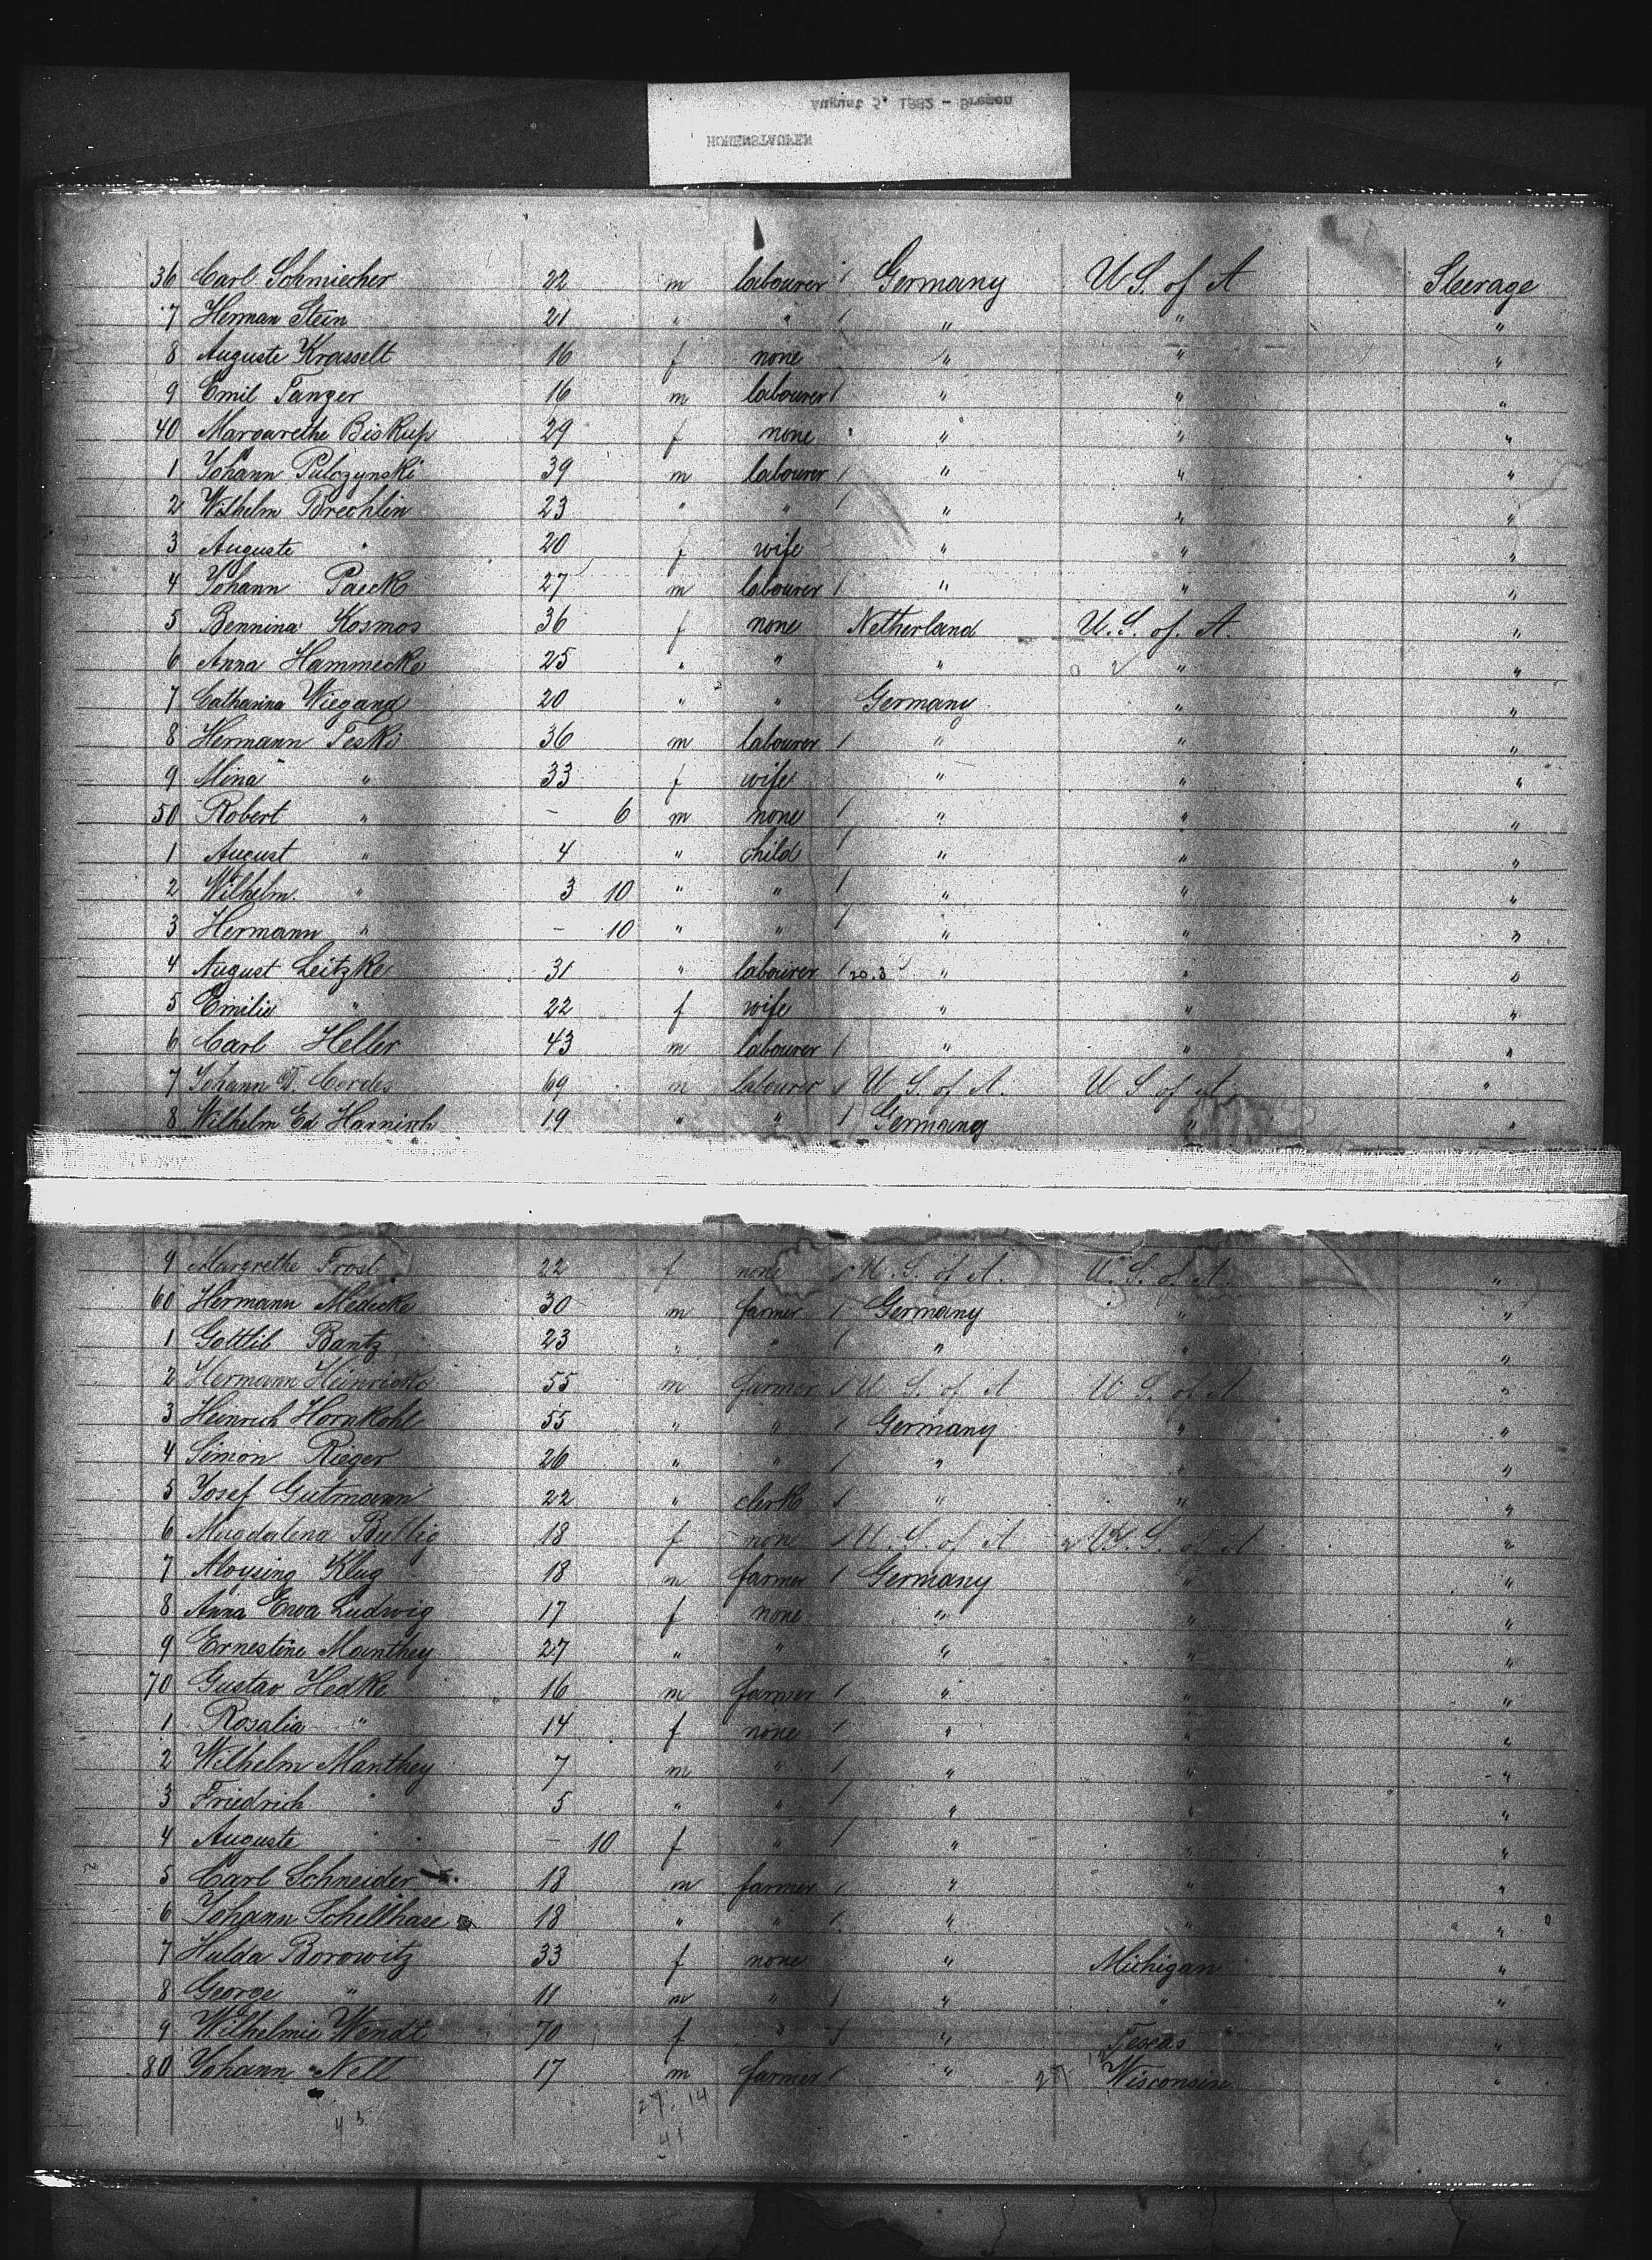 August 5, 1882 - Bremen
HOHENSTAUFEN
36 Carl Schmiecher 22 m labourer Germany U S. of A Steerage
7 Herman Stein 21 " " " " "
8 Auguste Krasselt 16 f none " " "
9 Emil Tanzer 16 m labourer " " "
40 Margarethe Biskup 29 f none " " "
1 Johann Pulczynski 39 m labourer " " "
2 Wilhelm Brechlin 23 " " " " "
3 Auguste " 20 f wife " " "
4 Johann Paeck 27 m labourer " " "
5 Bennina Kosmos 36 f none Netherland U. S. of. A. "
6 Anna Hammecke 25 " " " " "
7 Catharina Wiegand 20 " " Germany " "
8 Hermann Teski 36 m labourer " " "
9 Mina " 33 f wife " " "
50 Robert " - 6 m none " " "
1 August " 4 " child " " "
2 Wilhelm " 3 10 " " " " "
3 Hermann " - 10 " " " " "
4 August Leitzke 31 " labourer 20.3 " " "
5 Emilie " 22 f wife " " "
6 Carl Heller 43 m labourer " " "
7 Johann Cordes 69 m labourer U S. of A. U S of A "
8 Wilhelm Ed Harnisch 19 " " Germany " "
9 Margrethe Frost 22 f none U. S. of A. U. S. of A. "
60 Hermann Medecke 30 m farmer Germany " "
1 Gottlib Bantz 23 " " " " "
2 Hermann 55 m farmer U S. of A U S. of A "
3 Heinrich Hornkohl 55 " " Germany " "
4 Simon Rieger 26 " " " " "
5 Josef Gutmann 22 " clerk " " "
6 Magdalena Büttig 18 f none U. S. of A U. S. of A "
7 Aloysing Klug 18 m farmer Germany " "
8 Anna Ewa Ludwig 17 f none " " "
9 Ernestine Manthey 27 " " " " "
70 Gustav Hedke 16 m farmer " " "
1 Rosalia " 14 f none " " "
2 Wilhelm Manthey 7 m " " " "
3 Friedrich " 5 " " " " "
4 Auguste " - 10 f " " " "
5 Carl Schneider 18 m farmer " " "
6 Johann Schellhase 18 " " " " "
7 Hulda Borowitz 33 f none " Michigan "
8 George " 11 m " " " "
9 Wilhelmie Wendt 70 f " " Texas "
80 Johann Nell 17 m farmer " Wisconsin "
27. 14
41